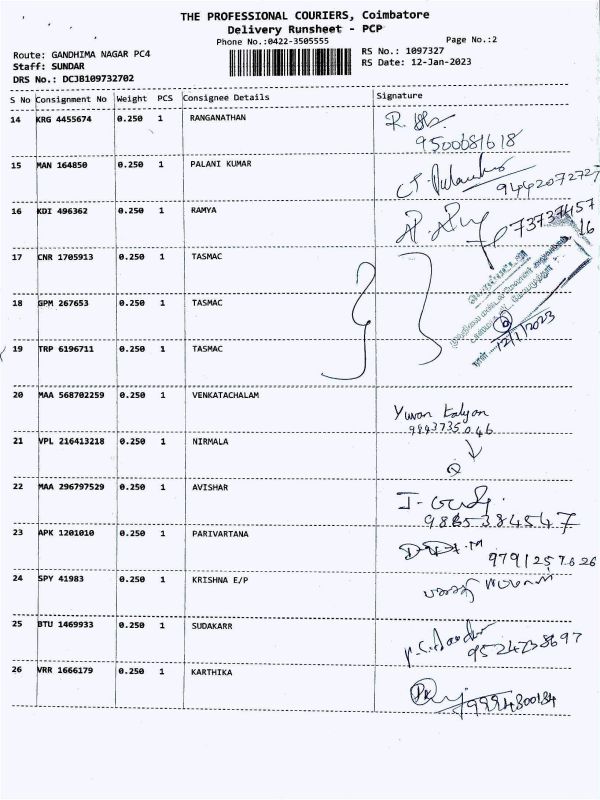 THE PROFESSIONAL COURIERS, Coimbatore
Delivery Runsheet - PCP
Phone No.:0422-3505555
Page No.:2
Route: GANDHIMA NAGAR PC4
RS No.: 1097327
Staff: SUNDAR
RS Date: 12-Jan-2023
DRS No.: DCJB109732702
S No Consignment No Weight PCS Consignee Details Signature
14 KRG 4455674 0.250 1 RANGANATHAN
9500681618
15 MAN 164850 0.250 1 PALANI KUMAR
9442072727
16 KDI 496362 0.250 1 RAMYA
7373745716
17 CNR 1705913 0.250 1 TASMAC
18 GPM 267653 0.250 1 TASMAC
12/1/2023
19 TRP 6196711 0.250 1 TASMAC
20 MAA 568702259 0.250 1 VENKATACHALAM
Yuvan Kalyan
9843735046
21 VPL 216413218 0.250 1 NIRMALA
22 MAA 296797529 0.250 1 AVISHAR
9885384547
23 APK 1201010 0.250 1 PARIVARTANA
9791257626
24 SPY 41983 0.250 1 KRISHNA E/P
25 BTU 1469933 0.250 1 SUDAKARR
9524738697
26 VRR 1666179 0.250 1 KARTHIKA
9994800184